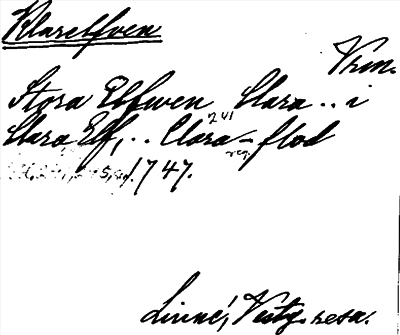 Klarelfven
Vrm.
Stora Elfwen Clara .. i
Clara Elf, .. Clara - flod
241
reg.
1747.
Linné, Västg. resa.